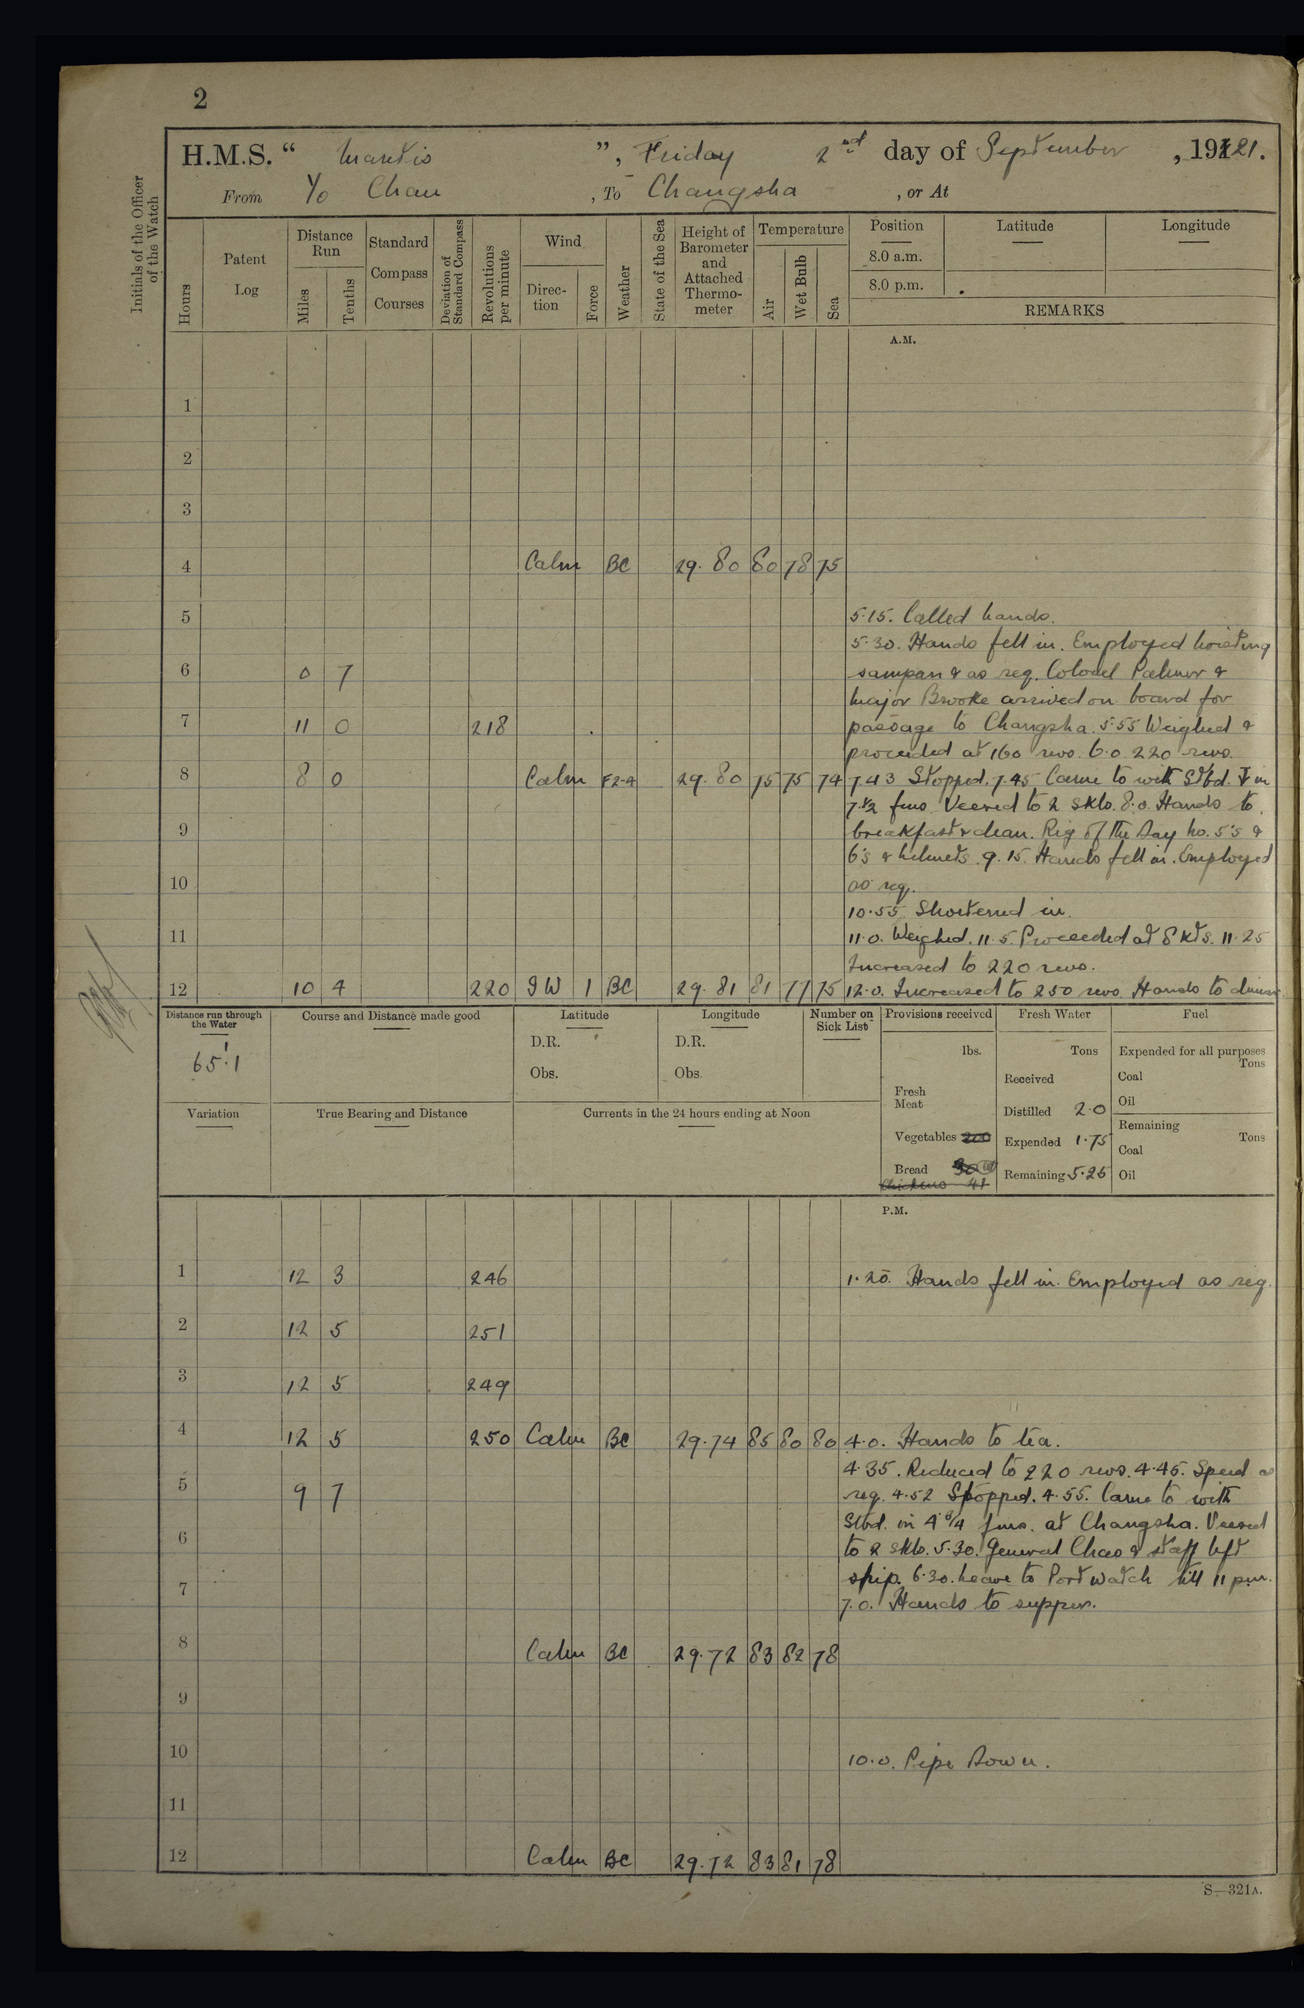 2
H.M.S. “ Mantis ”, Friday 2nd day of September , 1921.
From Yo Chau , To Changsha , or At
Initials of the Officer of the Watch
Hours
Patent Log
Distance Run
Miles
Tenths
Standard Compass Courses
Deviation of Standard Compass
Revolutions per minute
Wind
Direc-tion
Force
Weather
State of the Sea
Height of Barometer and Attached Thermo-meter
Temperature
Air
Wet Bulb
Sea
Position
8.0 a.m.
8.0 p.m.
Latitude
Longitude
REMARKS
A.M.
1
2
3
4 Calm BC 29.80 80 78 75
5 5.15. Called hands.
5.30. Hands fell in. Employed hoisting
6 0 7 sampan & as req. Colonel Palmer &
Major Brooke arrived on board for
7 11 0 218 passage to Changsha. 5.55 Weighed &
proceeded at 160 revs. 6.0 220 revs.
8 8 0 Calm F2-4 29.80 75 75 74 7.43 Stopped. 7.45 Came to with Stbd. in
7½ fms. Veered to 2 skls. 8.0. Hands to
9 breakfast & clean. Rig of the Day No. 5's &
6's & helmets. 9.15. Hands fell in. Employed
10 as req.
10.55 Shortened in.
11 11.0. Weighed. 11.5. Proceeded at 8 kts. 11.25
Increased to 220 revs.
12 10 4 220 SW 1 BC 29.81 81 77 75 12.0. Increased to 250 revs. Hands to dinner
Distance run through the Water
65.1
Course and Distance made good
Latitude
D.R.
Obs.
Longitude
D.R.
Obs.
Number on Sick List
Provisions received
lbs.
Fresh Meat
Vegetables 200
Bread 30
Chickens 41
Fresh Water
Tons
Received
Distilled 2.0
Expended 1.75
Remaining 5.25
Fuel
Expended for all purposes
Tons
Coal
Oil
Remaining
Tons
Coal
Oil
Variation
True Bearing and Distance
Currents in the 24 hours ending at Noon
P.M.
1 12 3 246 1.20. Hands fell in. Employed as req.
2 12 5 251
3 12 5 249
4 12 5 250 Calm BC 29.74 85 80 80 4.0. Hands to tea.
4.35. Reduced to 220 revs. 4.45. Speed as
5 9 7 req. 4.52 Stopped. 4.55. Came to with
Stbd. in 4¾ fms. at Changsha. Veered
6 to 2 skls. 5.30. General Chao & staff left
ship. 6.30. Leave to Port watch till 11 pm.
7 7.0. Hands to supper.
8 Calm BC 29.72 83 82 78
9
10 10.0. Pipe Down.
11
12 Calm BC 29.72 83 81 78
S—321A.